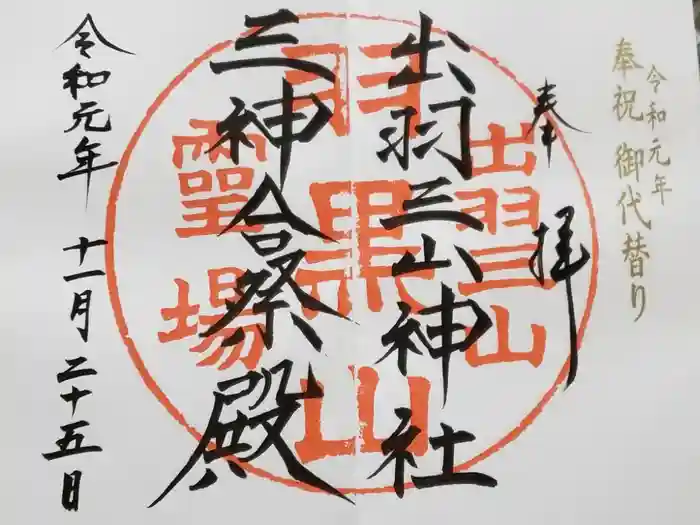 令和元年
奉祝 御代替り
奉拝
出羽三山神社
三神合祭殿
令和元年 十一月 二十五日
出羽三山
羽黒山
霊場